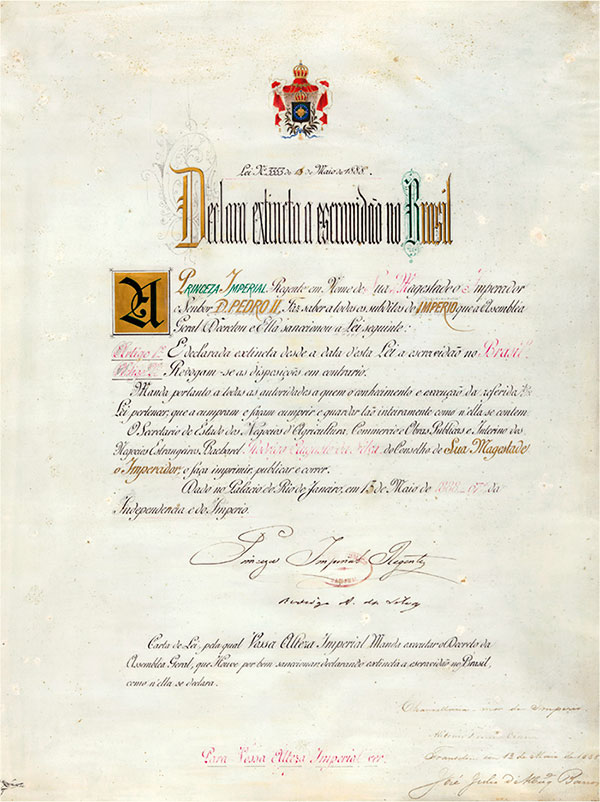 Lei Nº 3353 de 13 de Maio de 1888.
Declara extincta a escravidão no Brasil
A PRINCEZA IMPERIAL Regente em Nome de Sua Magestade o Imperador
o Senhor D. PEDRO II, Faz saber a todos os subditos do IMPERIO que a Assembléa
Geral Decretou e Ella sanccionou a Lei seguinte:
Artigo 1º É declarada extincta desde a data d'esta Lei a escravidão no Brazil
Artigo 2º Revogam-se as disposições em contrario.
Manda portanto a todas as autoridades a quem o conhecimento e execução da referida
Lei pertencer, que a cumpram e façam cumprir e guardar tão inteiramente como n'ella se contem.
O Secretario de Estado dos Negocios d'Agricultura, Commercio e Obras Publicas e Interino dos
Negocios Estrangeiros, Bacharel Rodrigo Augusto da Silva, do Conselho de Sua Magestade
o Imperador, o faça imprimir, publicar e correr.
Dado no Palacio do Rio de Janeiro, em 13 de Maio de 1888 67º da
Independencia e do Imperio.
Princeza Imperial Regente
Rodrigo A. da Silva
Carta de Lei, pela qual Vossa Alteza Imperial Manda executar o Decreto da
Assembléa Geral, que Houve por bem sanccionar, declarando extincta a escravidão no Brasil,
como n'ella se declara.
Para Vossa Alteza Imperial ver.
Chancellaria mór do Imperio
Transitou em 13 de Maio de 1888
José Julio d'Albuqº Barros